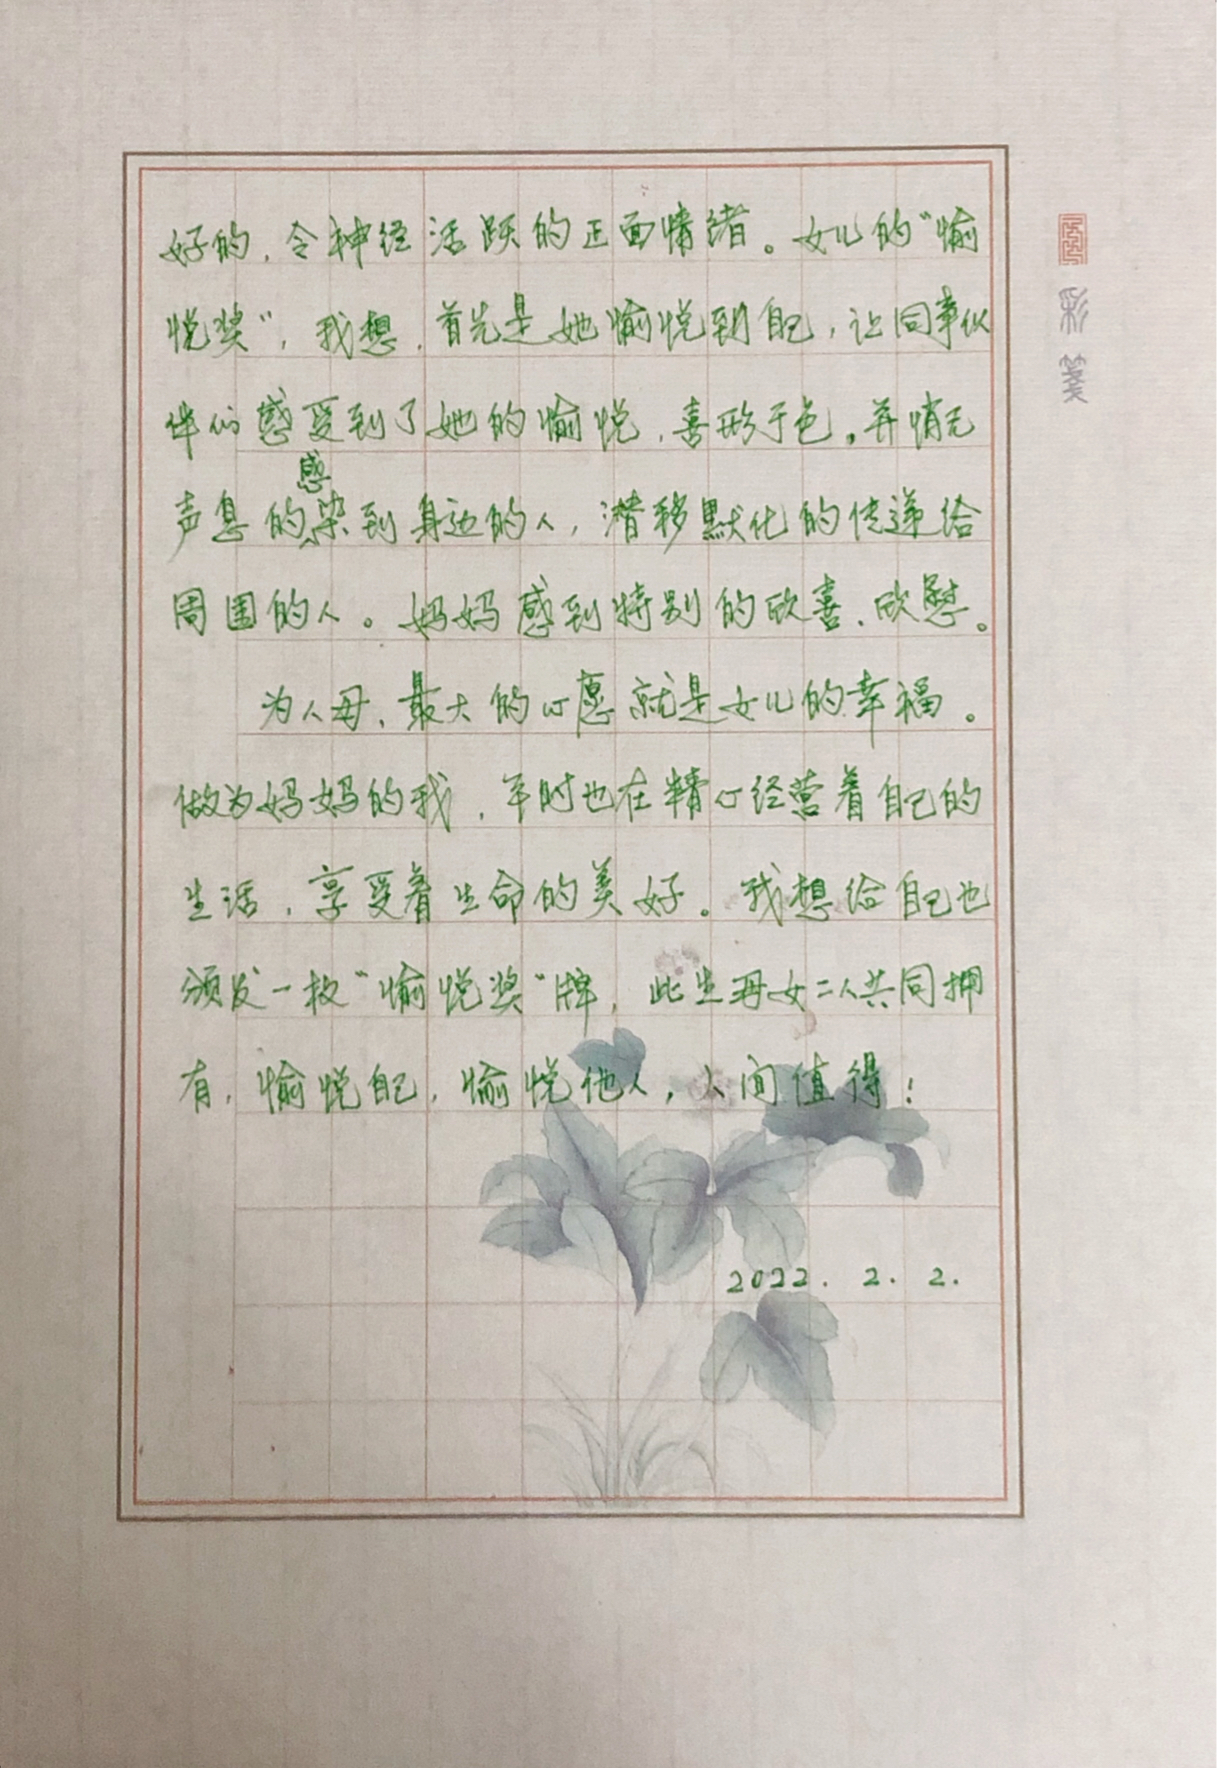 好的，令神经活跃的正面情绪。女儿的“愉
悦奖”，我想，首先是她愉悦到自己，让同事伙
伴们感受到了她的愉悦，喜形于色。并悄无
声息的感染到身边的人，潜移默化的传递给
周围的人。妈妈感到特别的欣喜、欣慰。
为人母，最大的心愿就是女儿的幸福。
做为妈妈的我，平时也在精心经营着自己的
生活，享受着生命的美好。我想给自己也
颁发一枚“愉悦奖”牌，此生母女二人共同拥
有，愉悦自己，愉悦他人，人间值得！
2022. 2. 2.
彩笺